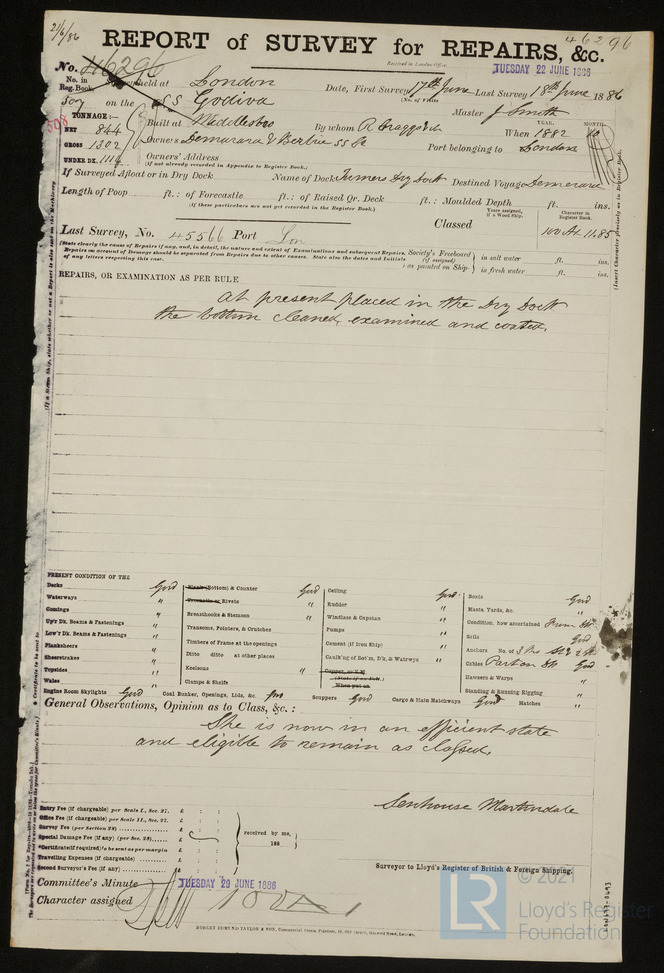 21/6/86
46296
REPORT of SURVEY for REPAIRS, &c.
Received in London Office,
TUESDAY 22 JUNE 1886
No. 46296
No. in Reg. Book.
held at London Date, First Survey 17th June Last Survey 18th June 1886
(No. of Visits
507 on the SS Godiva Master J Smith
508
TONNAGE:-
NET 844
GROSS 1302
UNDER DK. 1114
Built at Middlesbro By whom R Craggs & When 1882 10
YEAR. MONTH.
Owners Demerara & Berbice SS Co Port belonging to London
Owners' Address
(If not already recorded in Appendix to Register Book.)
If Surveyed Afloat or in Dry Dock Name of Dock Turners Dry Dock Destined Voyage Demerara
Length of Poop ft.: of Forecastle ft.: of Raised Qr. Deck ft.: Moulded Depth ft. ins.
(If these particulars are not yet recorded in the Register Book.)
Years assigned, if a Wood Ship.
Character in Register Book.
Last Survey, No. 45566 Port Lon Classed 100 A1 1.85
(State clearly the cause of Repairs if any, and, in detail, the nature and extent of Examinations and subsequent Repairs.
Repairs on account of Damage should be separated from Repairs due to other causes. State also the dates and Initials
of any letters respecting this case.
Society's Freeboard (if assigned) as painted on Ship.
in salt water ft. ins.
in fresh water ft. ins.
REPAIRS, OR EXAMINATION AS PER RULE
At present placed in the Dry Dock
the bottom cleaned, examined and coated.
PRESENT CONDITION OF THE
Decks Good
Waterways "
Comings "
Up'r Dk. Beams & Fastenings "
Low'r Dk. Beams & Fastenings "
Planksheers "
Sheerstrakes "
Topsides "
Wales "
Engine Room Skylights Good
Plank (Bottom) & Counter Good
Treenails or Rivets "
Breasthooks & Stemson "
Transoms, Pointers, & Crutches
Timbers of Frame at the openings
Ditto ditto at other places
Keelsons "
Clamps & Shelfs
Coal Bunker, Openings, Lids, &c.
Ceiling Good
Rudder "
Windlass & Capstan "
Pumps "
Cement (if Iron Ship) "
Caulk'ng of Bot'm, D'k, & Watrwys "
Copper, or Y.M.
(State if on Felt.)
When put on
Scuppers Good Cargo & Main Hatchways Good Hatches "
Boats Good
Masts, Yards, &c. "
Condition, how ascertained From Dk
Sails Good
Anchors No. of
Cables Good
Hawsers & Warps "
Standing & Running Rigging "
General Observations, Opinion as to Class, &c.:
She is now in an efficient state
and eligible to remain as classed.
Senhouse Martindale
Surveyor to Lloyd's Register of British & Foreign Shipping.
Entry Fee (if chargeable) per Scale I., Sec. 27. £ : :
Office Fee (if chargeable) per Scale II., Sec. 27. £ : :
Survey Fee (per Section 28) £ : :
Special Damage Fee (if any) (per Sec. 28) £ : :
*Certificate (if required) to be sent as per margin £
Travelling Expenses (if chargeable) £ : :
Second Surveyor's Fee (if any) £ : :
received by me,
188
Committee's Minute TUESDAY 29 JUNE 1886
Character assigned 100 A 1
© 2021
LR
Lloyd's Register
Foundation